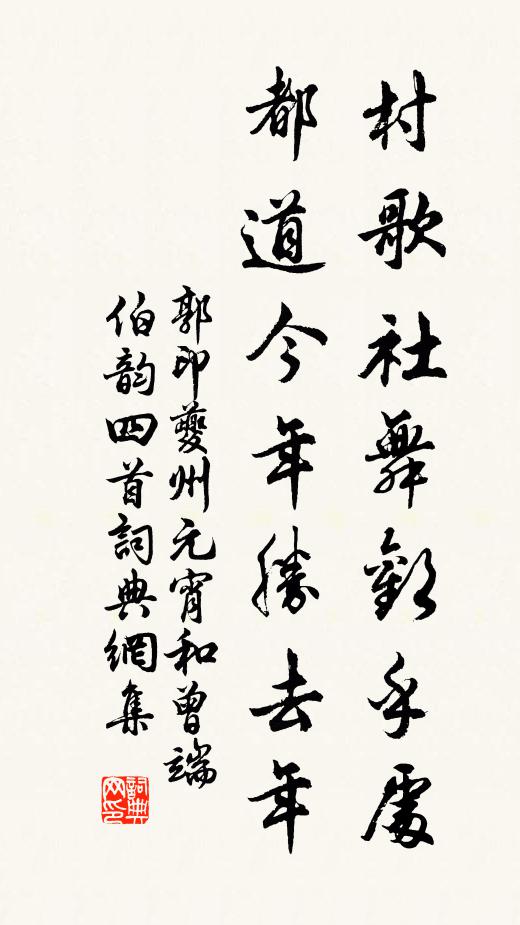 村歌社舞歡乎處
都道今年勝去年
郭印夔州元宵和曾端
伯韵四首詞典網集
詞典网印